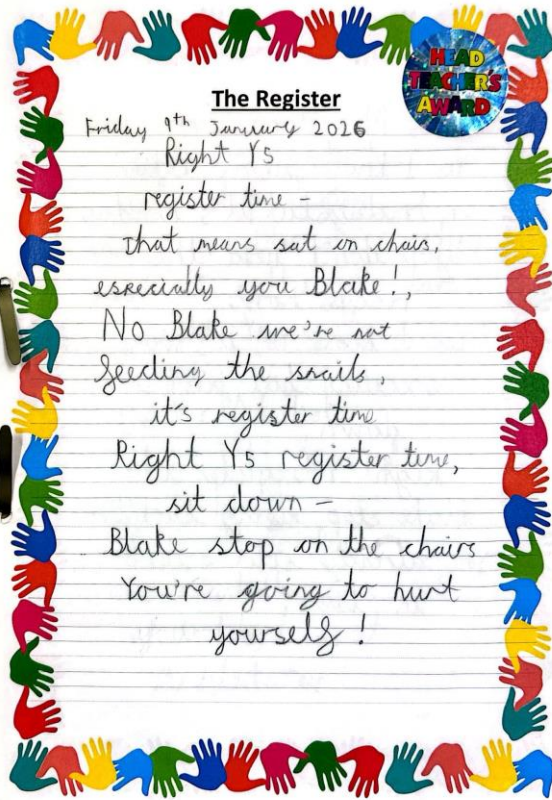 HEAD
TEACHER'S
AWARD
The Register
Friday 9th January 2026
Right Y5
register time -
that means sat on chairs,
especially you Blake!,
No Blake we're not
feeding the snails,
it's register time
Right Y5 register time,
sit down -
Blake stop on the chairs
You're going to hurt
yourself!